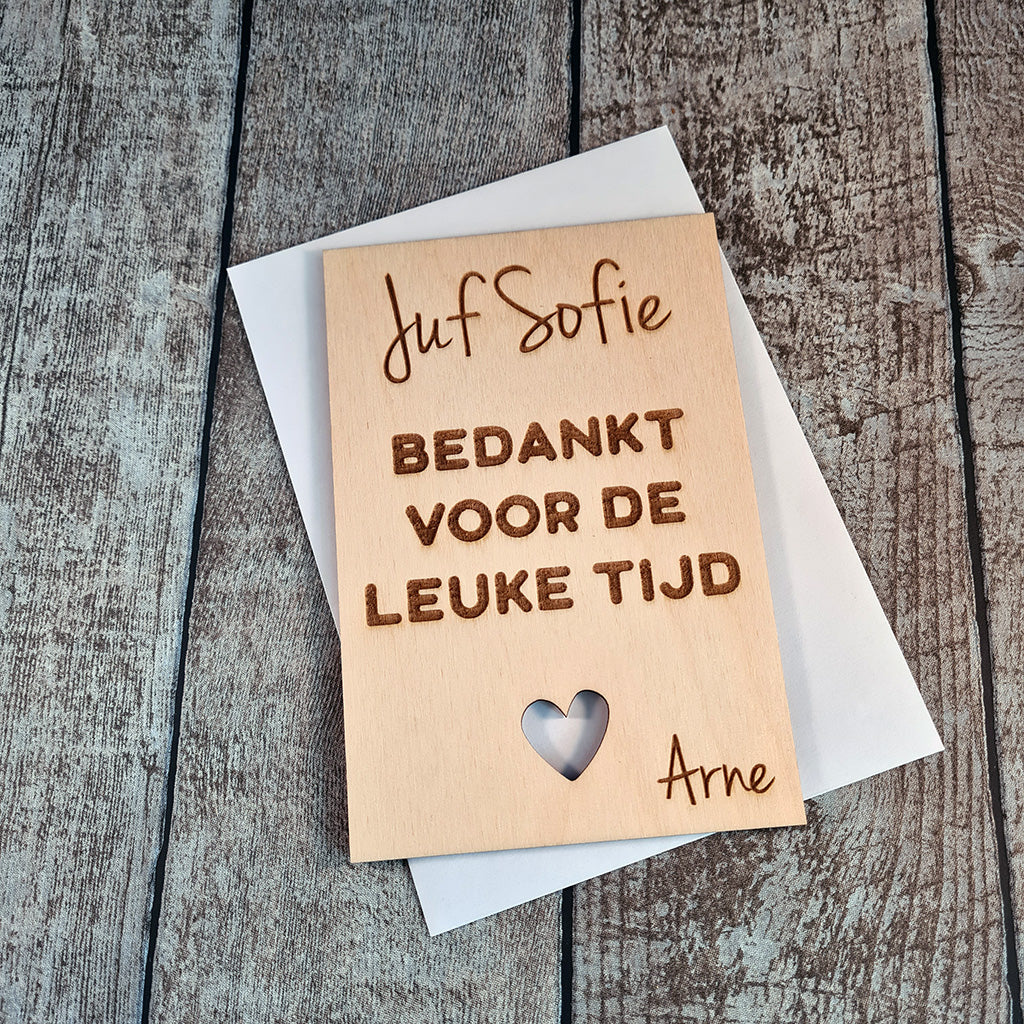 Juf Sofie
BEDANKT
VOOR DE
LEUKE TIJD
Arne